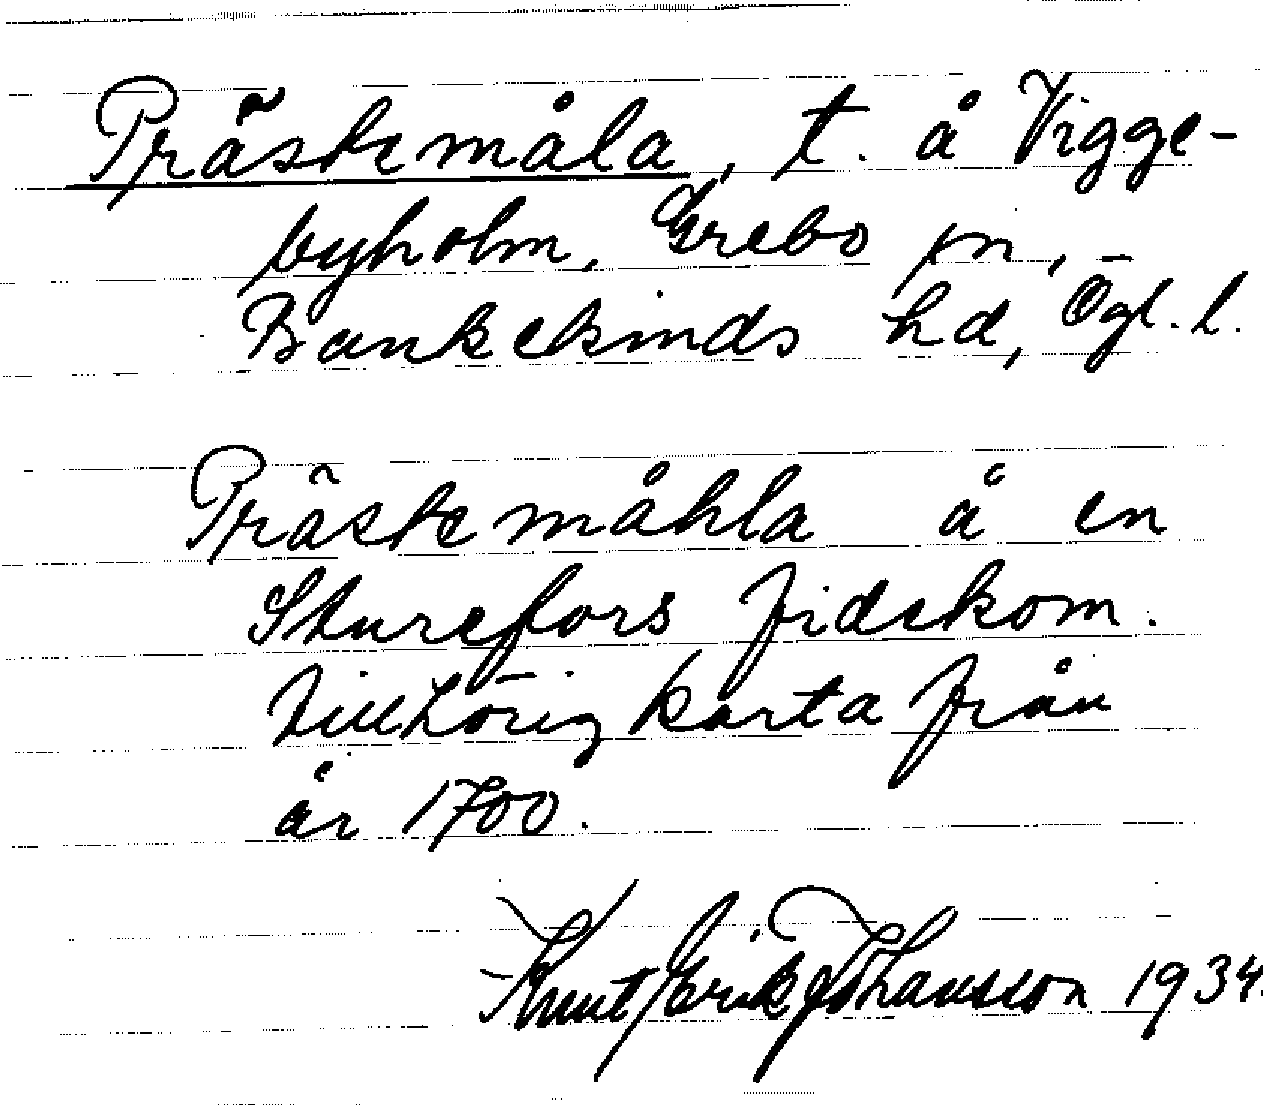 Prästemåla, t. å Vigge-
byholm, Grebo sn,
Bankekinds hd, Ögl. l.
Prästemåhla å en
Sturefors fideskom.
tillhörig karta från
år 1700.
Knut Erik Johansson 1934.